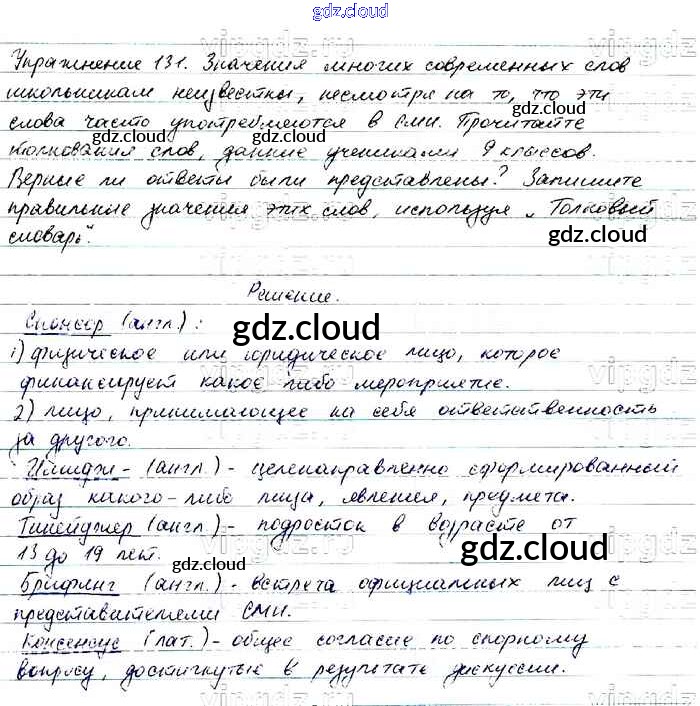 gdz.cloud
Упражнение 131. Значения многих современных слов
школьникам неизвестны, несмотря на то, что эти
слова часто употребляются в СМИ. Прочитайте
gdz.cloud gdz.cloud
толкования слов, данные учениками 9 классов.
gdz.cloud
Верные ли ответы были представлены? Запишите
правильные значения этих слов, используя „Толковый
словарь“.
gdz.cloud
Решение.
Спонсор (англ.):
gdz.cloud
1) физическое или юридическое лицо, которое
финансирует какое либо мероприятие.
2) лицо, принимающее на себя ответственность
за другого.
Имидж - (англ.) - целенаправленно сформированный
образ какого-либо лица, явления, предмета.
Тинейджер (англ.) - подросток в возрасте от
13 до 19 лет.
gdz.cloud gdz.cloud
Брифинг (англ.) - встреча официальных лиц с
представителями СМИ.
gdz.cloud
Консенсус (лат.) - общее согласие по спорному
вопросу, достигнутые в результате дискуссии.